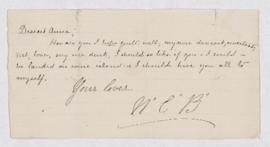 Dearest Anna,
How are you I hope quite well, my own dearest, sweetest,
pet, love, my own duck, I should so like if you & I could
be landed on some island & I should have you all to
myself.
Your lover
W C B